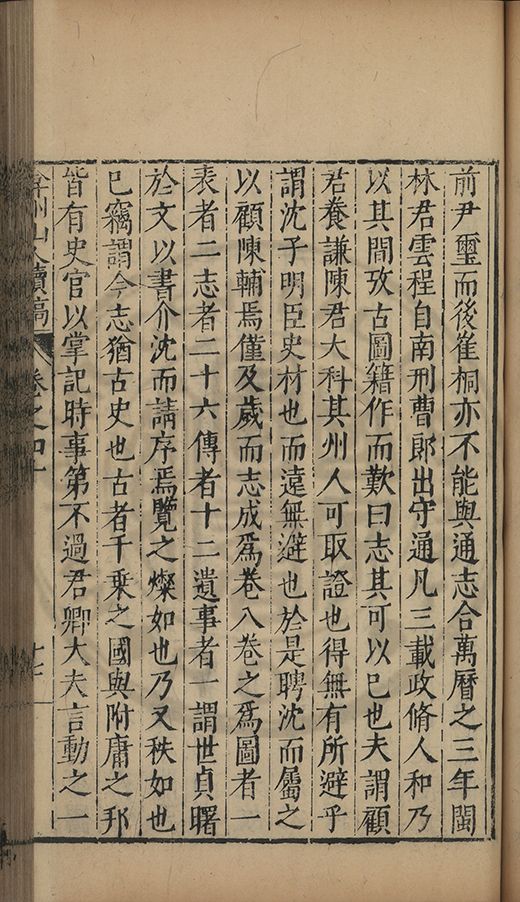 前尹璽而後崔桐亦不能與通志合萬曆之三年閩
林君雲程自南刑曹郎出守通凡三載政脩人和乃
以其間攷古圖籍作而歎曰志其可以已也夫謂顧
君養謙陳君大科其州人可取證也得無有所避乎
謂沈子明臣史材也而遠無避也於是聘沈而屬之
以顧陳輔焉僅及歲而志成爲卷八卷之爲圖者一
表者二志者二十六傳者十二遺事者一謂世貞曙
於文以書介沈而請序焉覽之燦如也乃又秩如也
已竊謂今志猶古史也古者千乗之國與附庸之邦
皆有史官以掌記時事第不過君卿大夫言動之一
弇州山人續稿 卷之四十